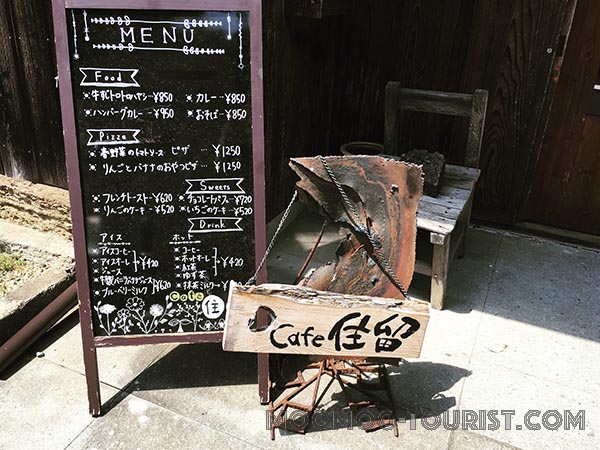 MENU
Food
牛すじトマトハヤシ…¥850
カレー…¥850
ハンバーグカレー…¥950
おそば…¥850
Pizza
春野菜のトマトソースピザ…¥1250
りんごとバナナのおやつピザ…¥1250
Sweets
フレンチトースト…¥620
チョコレートパフェ…¥720
りんごのケーキ…¥520
いちごのケーキ…¥520
Drink
アイス
アイスコーヒー
アイスオーレ
ジュース
¥420
ブルーベリーミルク ¥620
ホット
コーヒー
ホットオーレ
紅茶
ゆず茶
抹茶ミルク
¥420
Cafe 住
Cafe 住留
MOGMOG-TOURIST.COM